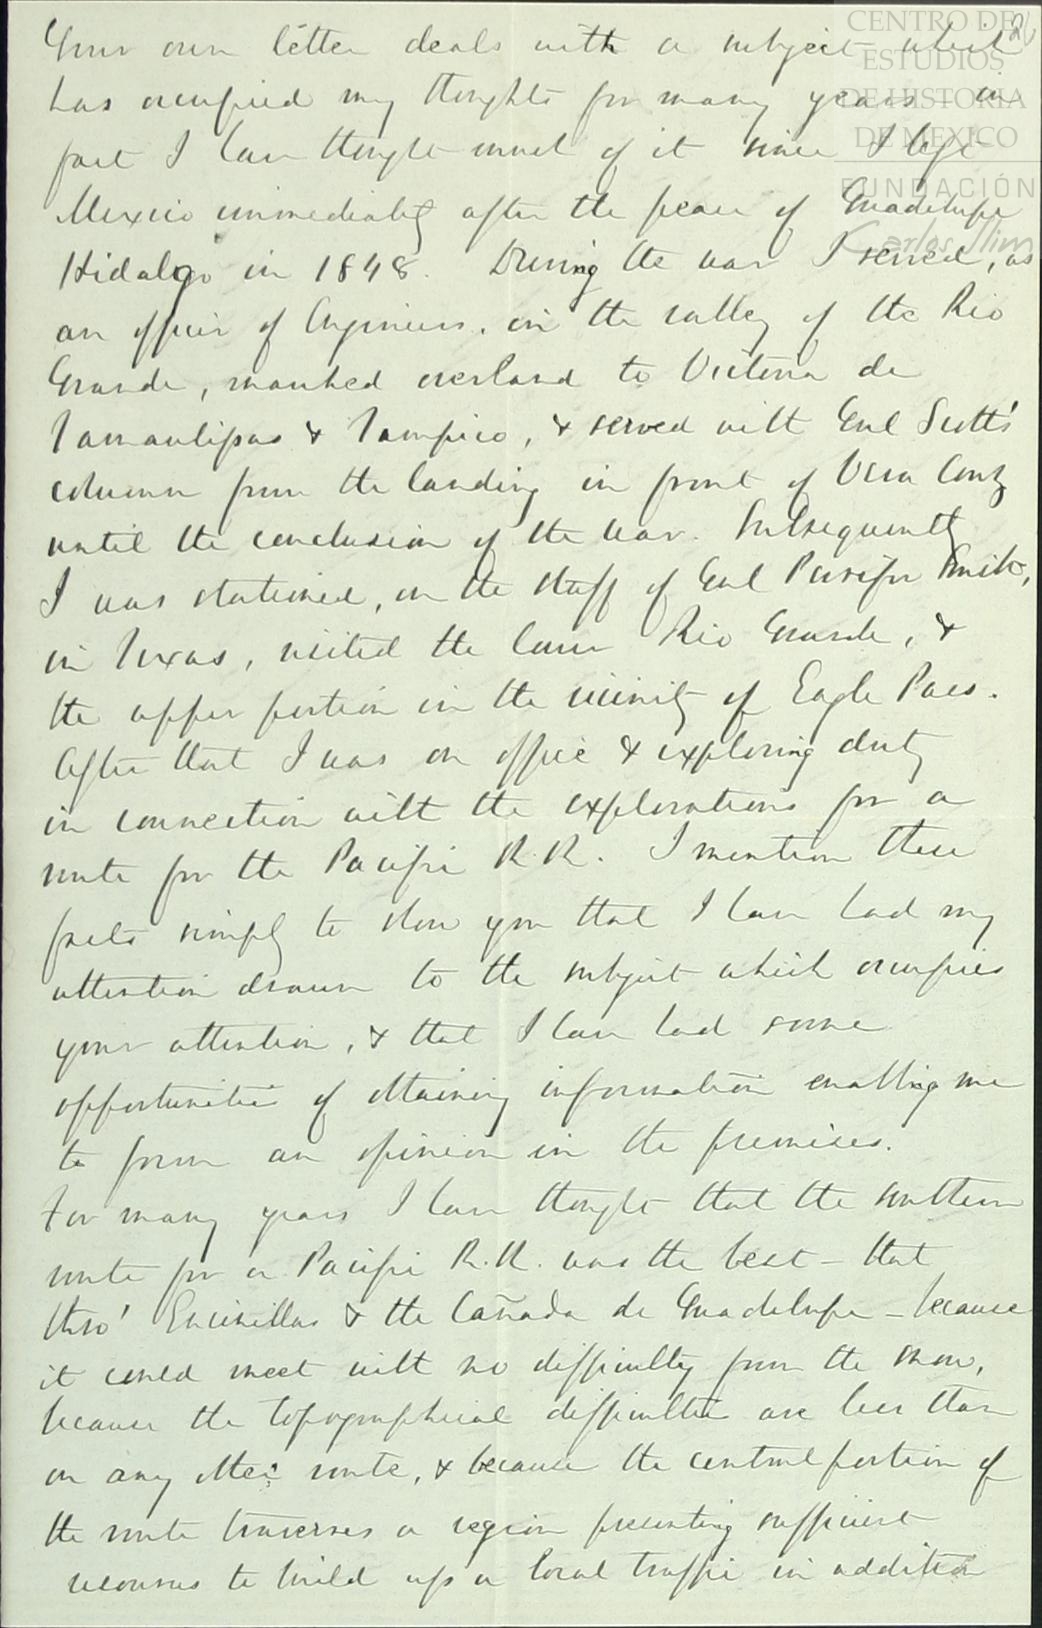 2
CENTRO DE
ESTUDIOS
DE HISTORIA
DE MEXICO
FUNDACIÓN
Carlos Slim
Your own letter deals with a subject which
has occupied my thoughts for many years – in
fact I have thought much of it since I left
Mexico immediately after the peace of Guadelupe
Hidalgo in 1848. During the war I served, as
an officer of Engineers, in the valley of the Rio
Grande, marched overland to Victoria de
Tamaulipas & Tampico, & served with Genl Scott's
column from the landing in front of Vera Cruz
until the conclusion of the war. Subsequently
I was stationed, on the staff of Genl Persifor Smith,
in Texas, visited the lower Rio Grande, &
the upper portion in the vicinity of Eagle Pass.
After that I was on office & exploring duty
in connection with the explorations for a
route for the Pacific R.R. I mention these
facts simply to show you that I have had my
attention drawn to the subject which occupies
your attention, & that I have had some
opportunities of obtaining information enabling me
to form an opinion in the premises.
For many years I have thought that the southern
route for a Pacific R.R. was the best – that
thro' Encinillas & the Cañada de Guadelupe – because
it could meet with no difficulty from the snow,
because the topographical difficulties are less than
on any other route, & because the central portion of
the route traverses a region presenting sufficient
resources to build up a local traffic in addition